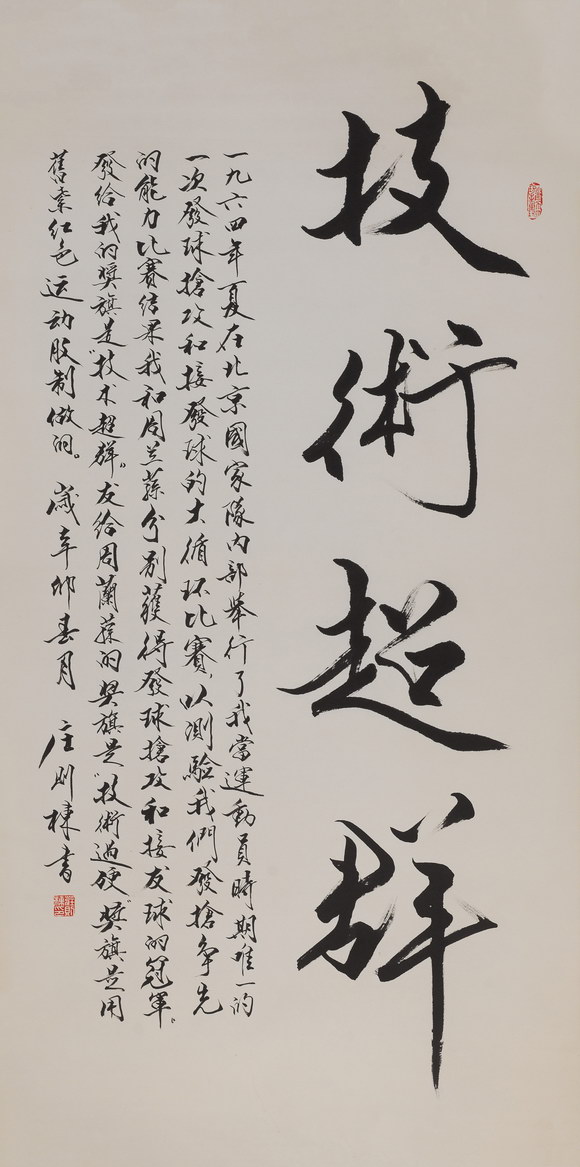 技術超群
一九六四年夏在北京國家隊内部舉行了我當運動員時期唯一的
一次發球搶攻和接發球的大循环比賽，以測驗我們發搶争先
的能力比賽结果我和周兰蓀分别獲得發球搶攻和接发球的冠軍。
發给我的奬旗是“技术超群”。发给周蘭蓀的奬旗是“技術過硬”奬旗是用
舊紫红色运动服制做的。歲辛卯春月 庄则棟書